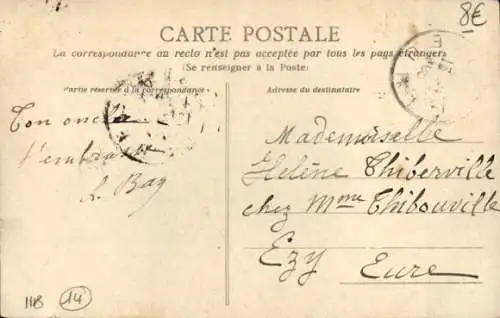 8€
CARTE POSTALE
La correspondance au recto n'est pas acceptée par tous les pays étrangers
(Se renseigner à la Poste)
Partie réservée à la correspondance
Adresse du destinataire
Ton oncle
t'embrasse
Mademoiselle
Helène Thiberville
chez Mme Thibouville
Ezy
Eure
14